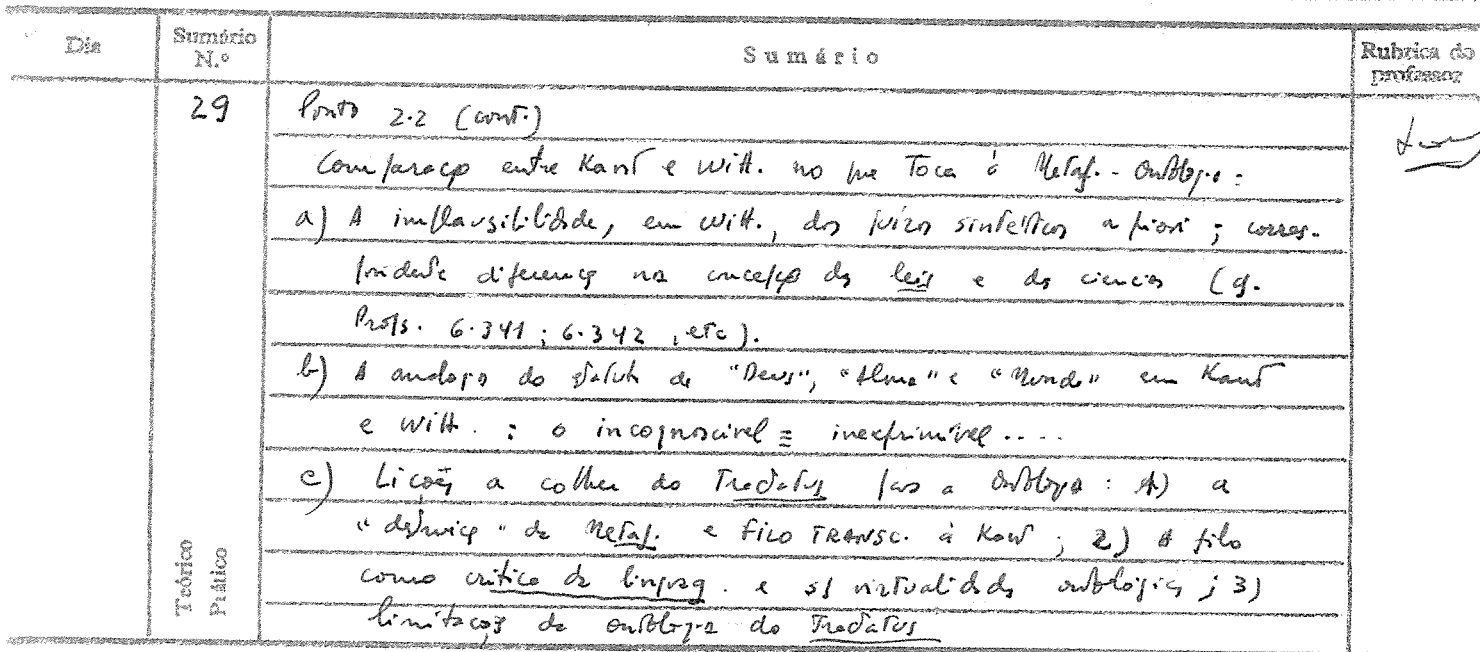 Dia
Sumário N.º
Sumário
Rubrica do professor
29
Ponto 2.2 (cont.)
Comparação entre Kant e Witt. no que toca à Metaf. - Ontologia:
a) A implausibilidade, em Witt., dos juízos sintéticos a priori; corres-
pondente diferença na concepção das leis e das ciências (cf.
Props. 6.341; 6.342, etc).
b) A analogia do estatuto de "Deus", "Alma" e "Mundo" em Kant
e Witt.: o incognoscível ≡ inexprimível....
c) Lições a colher do Tractatus para a Ontologia: 1) a
"destruição" da Metaf. e Filo TRANSC. à Kant; 2) A filo
como crítica da linguag. e virtualidades ontológicas; 3)
limitações da ontologia do Tractatus
Teórico
Prático